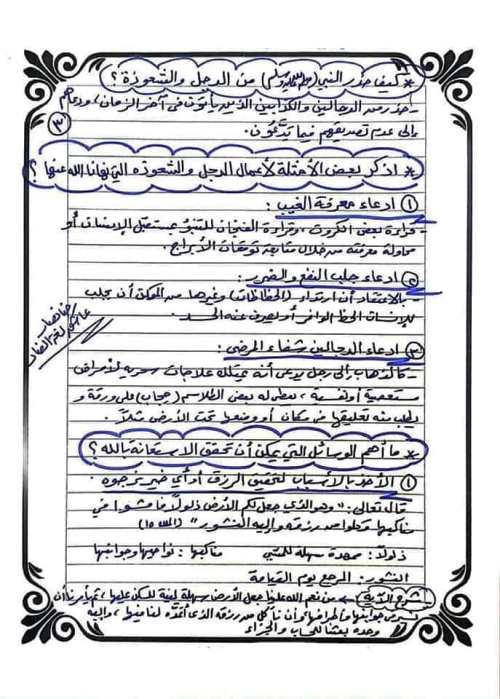 * كيف حذر النبي (صلى الله عليه وسلم) من الدجل والشعوذة ؟
- حذر من الدجالين والكذابين الذين يأتون في آخر الزمان، ودعاهم
إلى عدم تصديقهم فيما يدّعون.
٣
* اذكر بعض الأمثلة لأعمال الدجل والشعوذة التي نهانا الله عنها ؟
١ ادعاء معرفة الغيب :
- قراءة بعض الكروت، وقراءة الفنجان للتنبؤ بمستقبل الإنسان أو
محاولة معرفته من خلال متابعة توقعات الأبراج.
٢ ادعاء جلب النفع والضرر :
- بالاعتقاد أن ارتداء (الحظاظات) وغيرها من الممكن أن يجلب
للإنسان الحظ الوافر أو يصرف عنه الحسد.
٣ ادعاء الدجالين شفاء المرضى :
- كالذهاب إلى رجل يدعي أنه يمتلك علاجات سحرية لأمراض
مستعصية أو نفسية، يعطيه بعض الطلاسم (حجاب) على ورقة و
يطلب منه تعليقها في مكان أو وضعها تحت الأرض مثلاً.
* ما أهم الوسائل التي يمكن أن تحقق الاستعانة بالله ؟
١ الأخذ بالأسباب لتحقيق الرزق أو أي خير نرجوه.
قال تعالى : "هو الذي جعل لكم الأرض ذلولاً فامشوا في
مناكبها وكلوا من رزقه وإليه النشور" (الملك ١٥)
ذلولاً : ممهدة سهلة للمشي مناكبها : نواحيها وجوانبها
النشور : المرجع يوم القيامة
شرح الآية ← من نعم الله علينا جعل الأرض سهلة لينة للسكن عليها، ثم أمرنا أن
جوانبها وأطرافها وأن نأكل من رزقه الذي أعده لنا فيها، وإليه
وحده بعثنا للحساب والجزاء